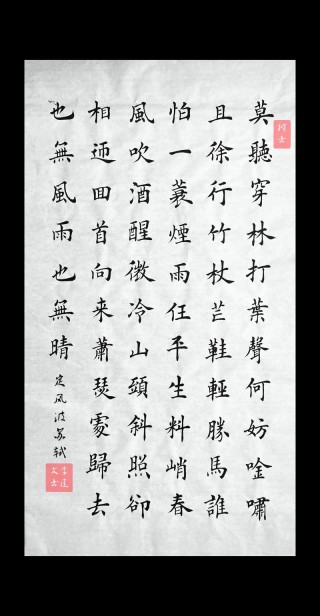 莫聽穿林打葉聲何妨唫嘯
且徐行竹杖芒鞋輕勝馬誰
怕一蓑煙雨任平生料峭春
風吹酒醒微冷山頭斜照卻
相迎囬首向来蕭瑟處歸去
也無風雨也無晴
定风波苏轼